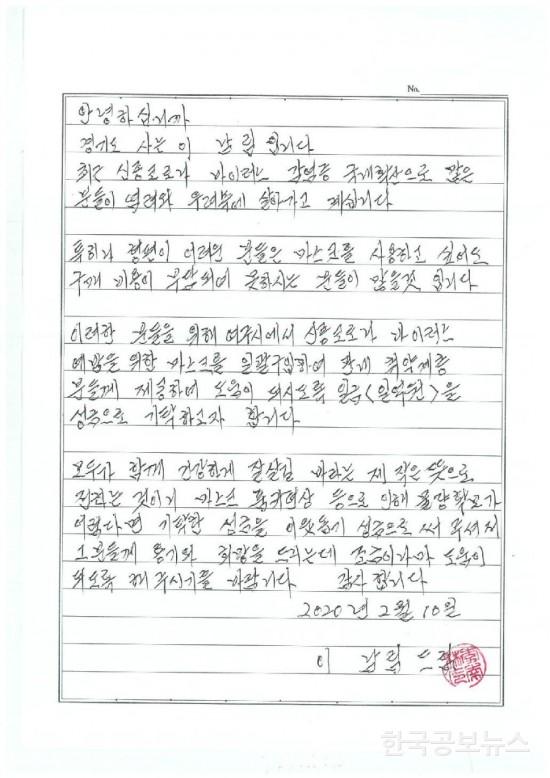 No.
안녕하십니까
경기도 사는 이 남림 입니다
최근 신종코로나 바이러스 감염증 국내확산으로 많은
분들이 염려와 우려속에 살아가고 계십니다
특히나 형편이 어려운 분들은 마스크를 사용하고 싶어도
구매 비용이 부담되어 못하시는 분들이 많을것 입니다
이러한 분들을 위해 여주시에서 신종코로나 바이러스
예방을 위한 마스크를 일괄구입하여 관내 취약계층
분들께 제공하여 도움이 되시도록 일금<일억원>을
성금으로 기탁하고자 합니다
모두가 함께 건강하게 잘살길 바라는 제 작은 뜻으로
전하는 것이기 마스크 품귀현상 등으로 인해 물량확보가
어렵다면 기탁한 성금을 이웃돕기 성금으로 써 주셔서
그분들께 용기와 희망을 드리는데 조금이나마 도움이
되도록 해 주시기를 바랍니다 감사 합니다
2020년 2월 10일
이 남림 드림
한국공보뉴스